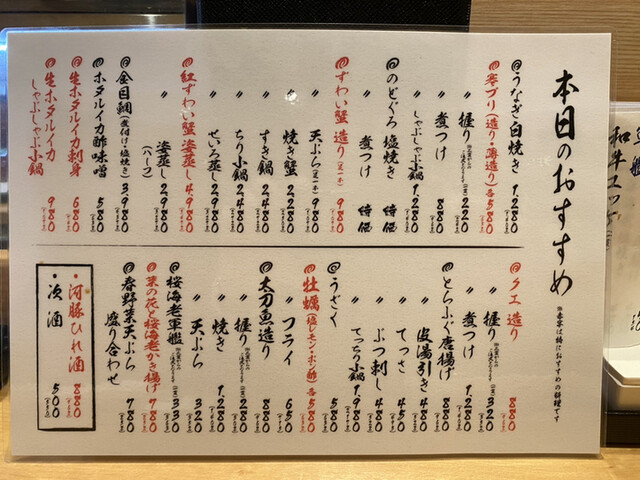 本日のおすすめ
※赤字は特におすすめの料理です
うなぎ白焼き 1,280
寒ブリ(造り・薄造り)各580
〃 握り
〃 煮つけ 880
〃 しゃぶしゃぶ小鍋 1,280
のどぐろ 塩焼き 時価
〃 煮つけ 時価
ずわい蟹 造り 980
〃 天ぷら 980
〃 焼き蟹 2,280
〃 すき鍋 2,480
〃 ちり小鍋 2,480
〃 せいろ蒸し 2,980
紅ずわい蟹 姿蒸し 4,980
〃 姿蒸し(ハーフ) 2,980
金目鯛(煮付け・塩焼き) 3,980
ホタルイカ酢味噌 580
生ホタルイカ刺身 680
生ホタルイカしゃぶしゃぶ小鍋 980
クエ 造り 880
〃 握り 320
〃 煮つけ 1,280
とらふぐ唐揚げ 880
〃 皮湯引き 480
〃 てっさ 450
〃 ぶつ刺し 480
〃 てっちり小鍋 1,980
うざく 580
牡蠣(塩レモン・ポン酢)各580
〃 フライ 650
太刀魚造り 880
〃 握り 220
〃 焼き 1,280
〃 天ぷら 320
桜海老軍艦 330
菜の花と桜海老かき揚げ 780
春野菜天ぷら盛り合わせ 780
・河豚ひれ酒 880
・冷酒 500
和牛ユッケ